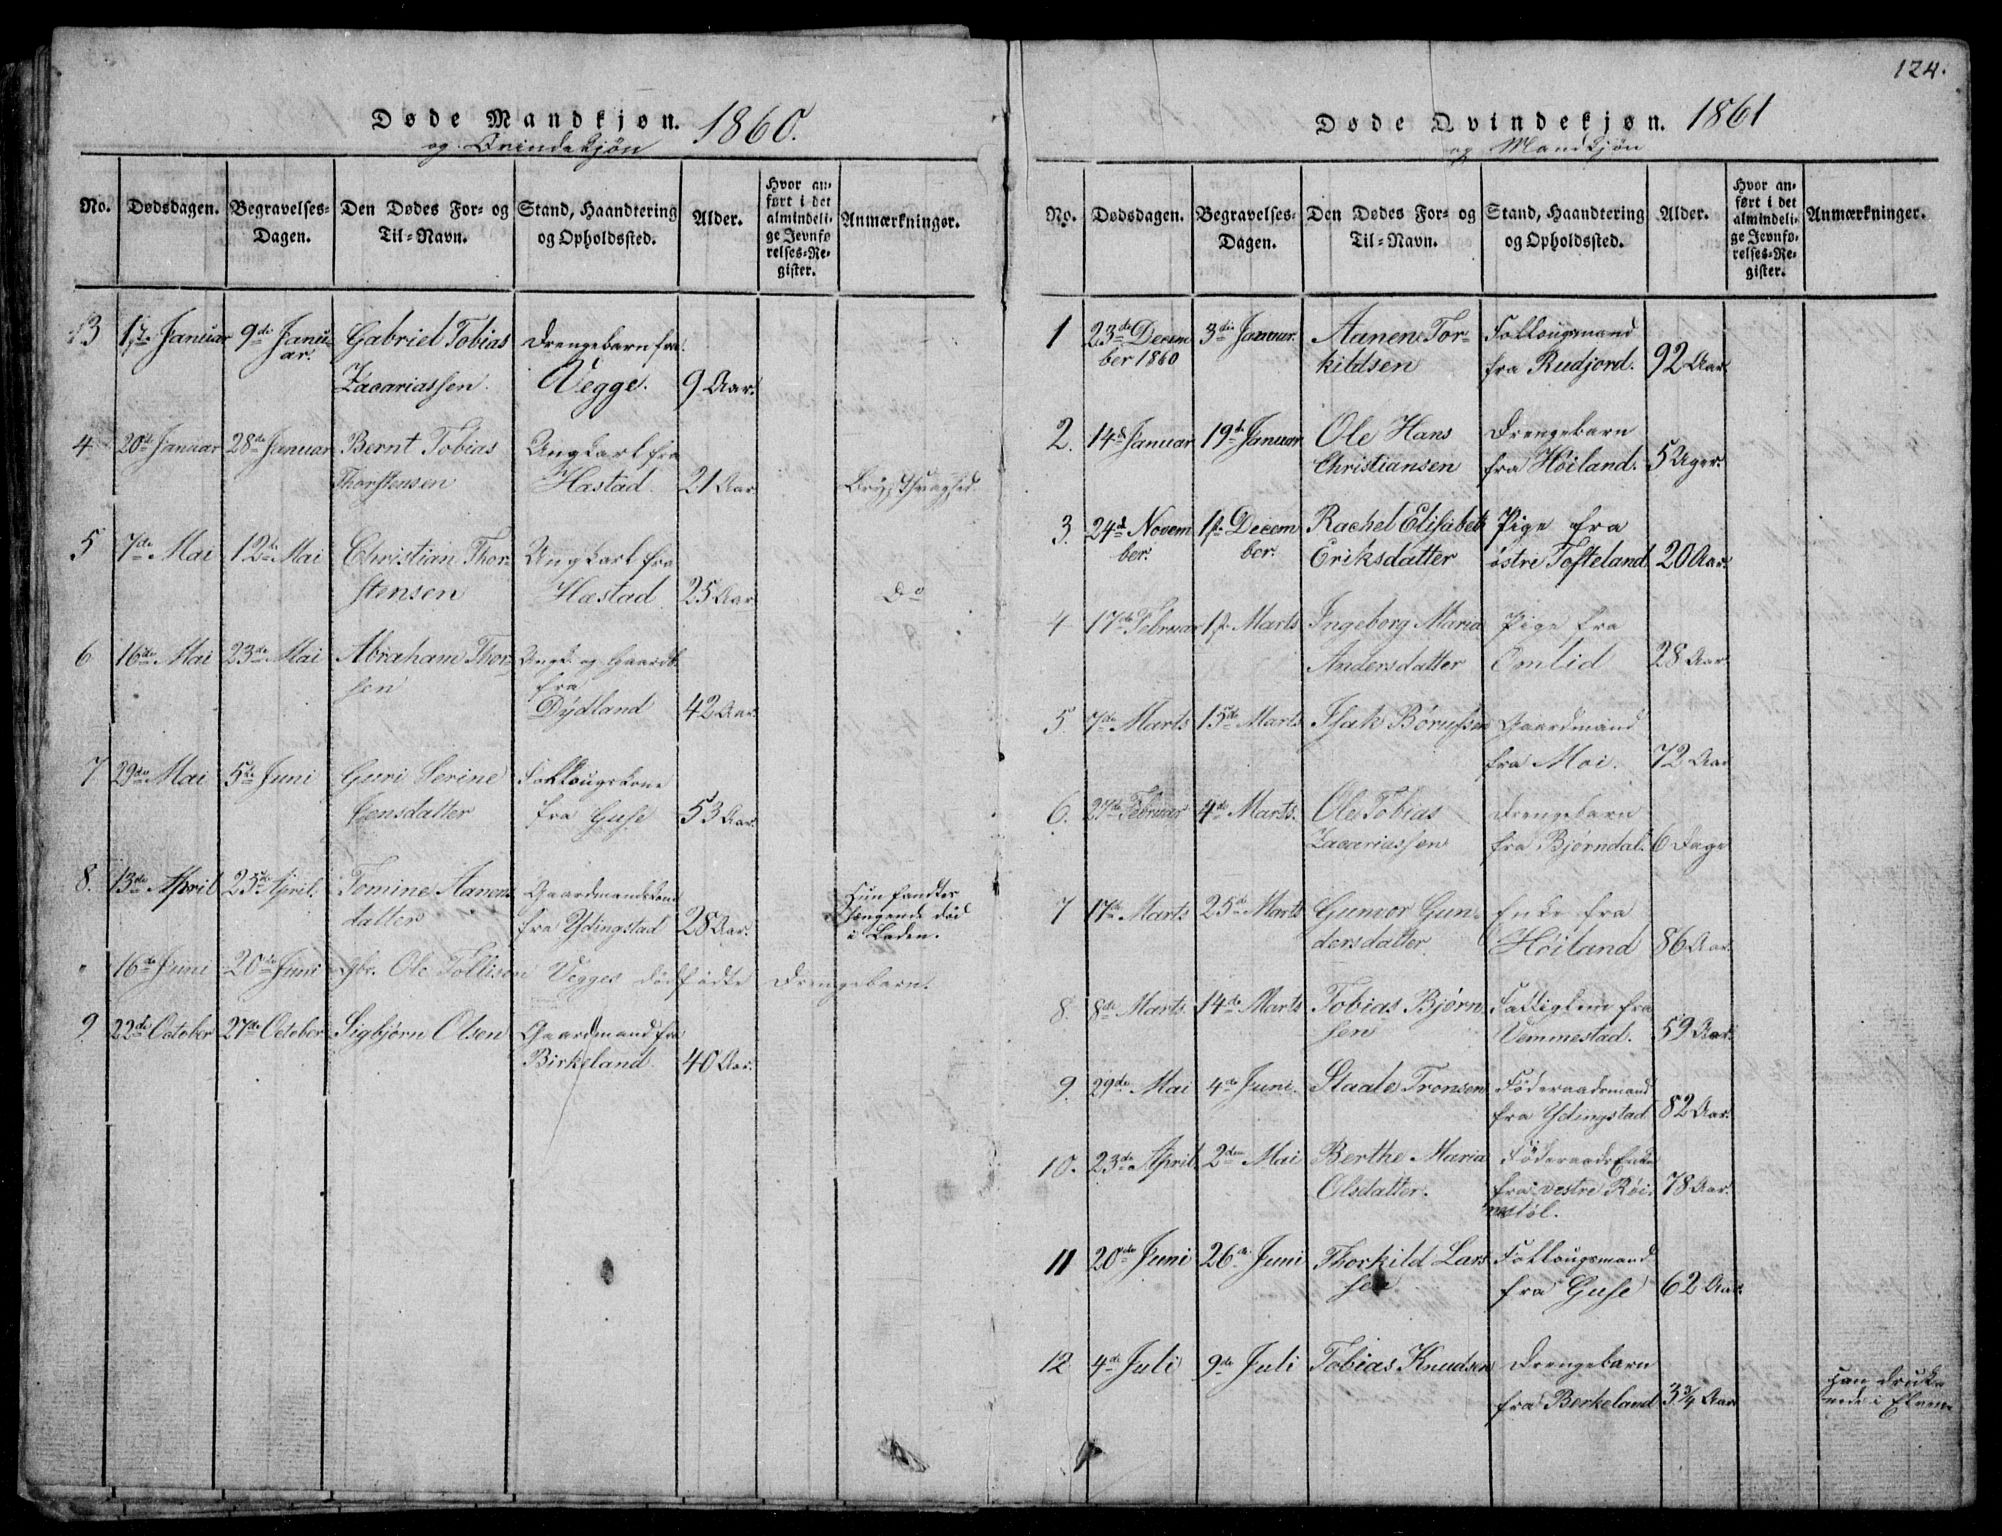 Døde Mandkjøn. 1860.
og Qvindekjøn
No. Dødsdagen. Begravelses-Dagen. Den Dødes For- og Til-Navn. Stand, Haandtering og Opholdssted. Alder. Hvor anført i det almindelige Jevnførelses-Register. Anmærkninger.
3 1ste Januar 9de Janu- Gabriel Tobias Drengebarn fra
ar. Zacariassen. Vegge. 9 Aar.
4 20de Januar 28de Januar Bernt Tobias Ungkarl fra
Thorstensen Hæstad. 21 Aar.
5 7de Mai 12de Mai Christian Thor- Ungkarl fra
stensen Hæstad 25 Aar. Do
6 16de Mai 23de Mai Abraham Thor- Ungk. og Gaardb.
sen fra
Dydland 42 Aar.
7 29de Mai 5de Juni Guri Serine
Jensdatter fra Guse 53 Aar.
8. 13de April 25de April. Tomine Aanens- Gaardmandskone
datter fra Ydingstad 28 Aar. Hun fandtes
hængende død
i Laden.
" 16de Juni 20de Juni Gbr. Ole Tollisen Vegges dødfødte Drengebarn.
9 22de October 27de October Sigbjørn Olsen Gaardmand fra
Birkeland 40 Aar.
124.
Døde Qvindekjøn. 1861
og Mandkjøn
No. Dødsdagen. Begravelses-Dagen. Den Dødes For- og Til-Navn. Stand, Haandtering og Opholdssted. Alder. Hvor anført i det almindelige Jevnførelses-Register. Anmærkninger.
1 23de Decem- 3die Januar. Aanen Tor-
ber 1860 kildsen fra Rudjord. 92 Aar.
2. 14de Januar 19de Januar Ole Hans Drengebarn
Christiansen fra Høiland. 5 Uger.
3. 24de Novem- 1ste Decem- Rachel Elisabeth Pige fra
ber. ber. Eriksdatter østre Tofteland 20 Aar.
4 17de Februar 1ste Marts Ingeborg Maria Pige fra
Andersdatter Omlid 28 Aar.
5. 7de Marts 15de Marts Isak Børufsen Gaardmand
fra Moi. 72 Aar
6. 27de Februar 4de Marts. Ole Tobias Drengebarn
Zacariassen fra Bjørndal. 6 Dage
7 17de Marts 25de Marts Gunvor Gun- Enke fra
dersdatter Høiland 86 Aar.
8. 8de Marts. 14de Marts Tobias Bjørn- Fattiglem fra
sen Vemmestad. 59 Aar.
9. 29de Mai 4de Juni. Staale Tronsen Føderaadsmand
fra Ydingstad 82 Aar.
10. 23de April 2den Mai Berthe Maria FøderaadsEnke
Olsdatter. fra vestre Røi- 78 Aar.
nestøl.
11 20de Juni 26de Juni Thorkild Lars-
sen fra Guse 62 Aar.
12. 4de Juli 9de Juli Tobias Knudsen Drengebarn
fra Berkeland 3 3/4 Aar Han druk-
nede i Elven.